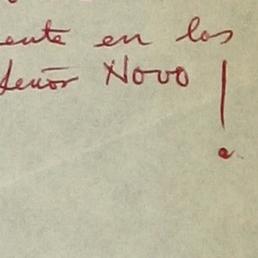 ente en los
Señor Novo!